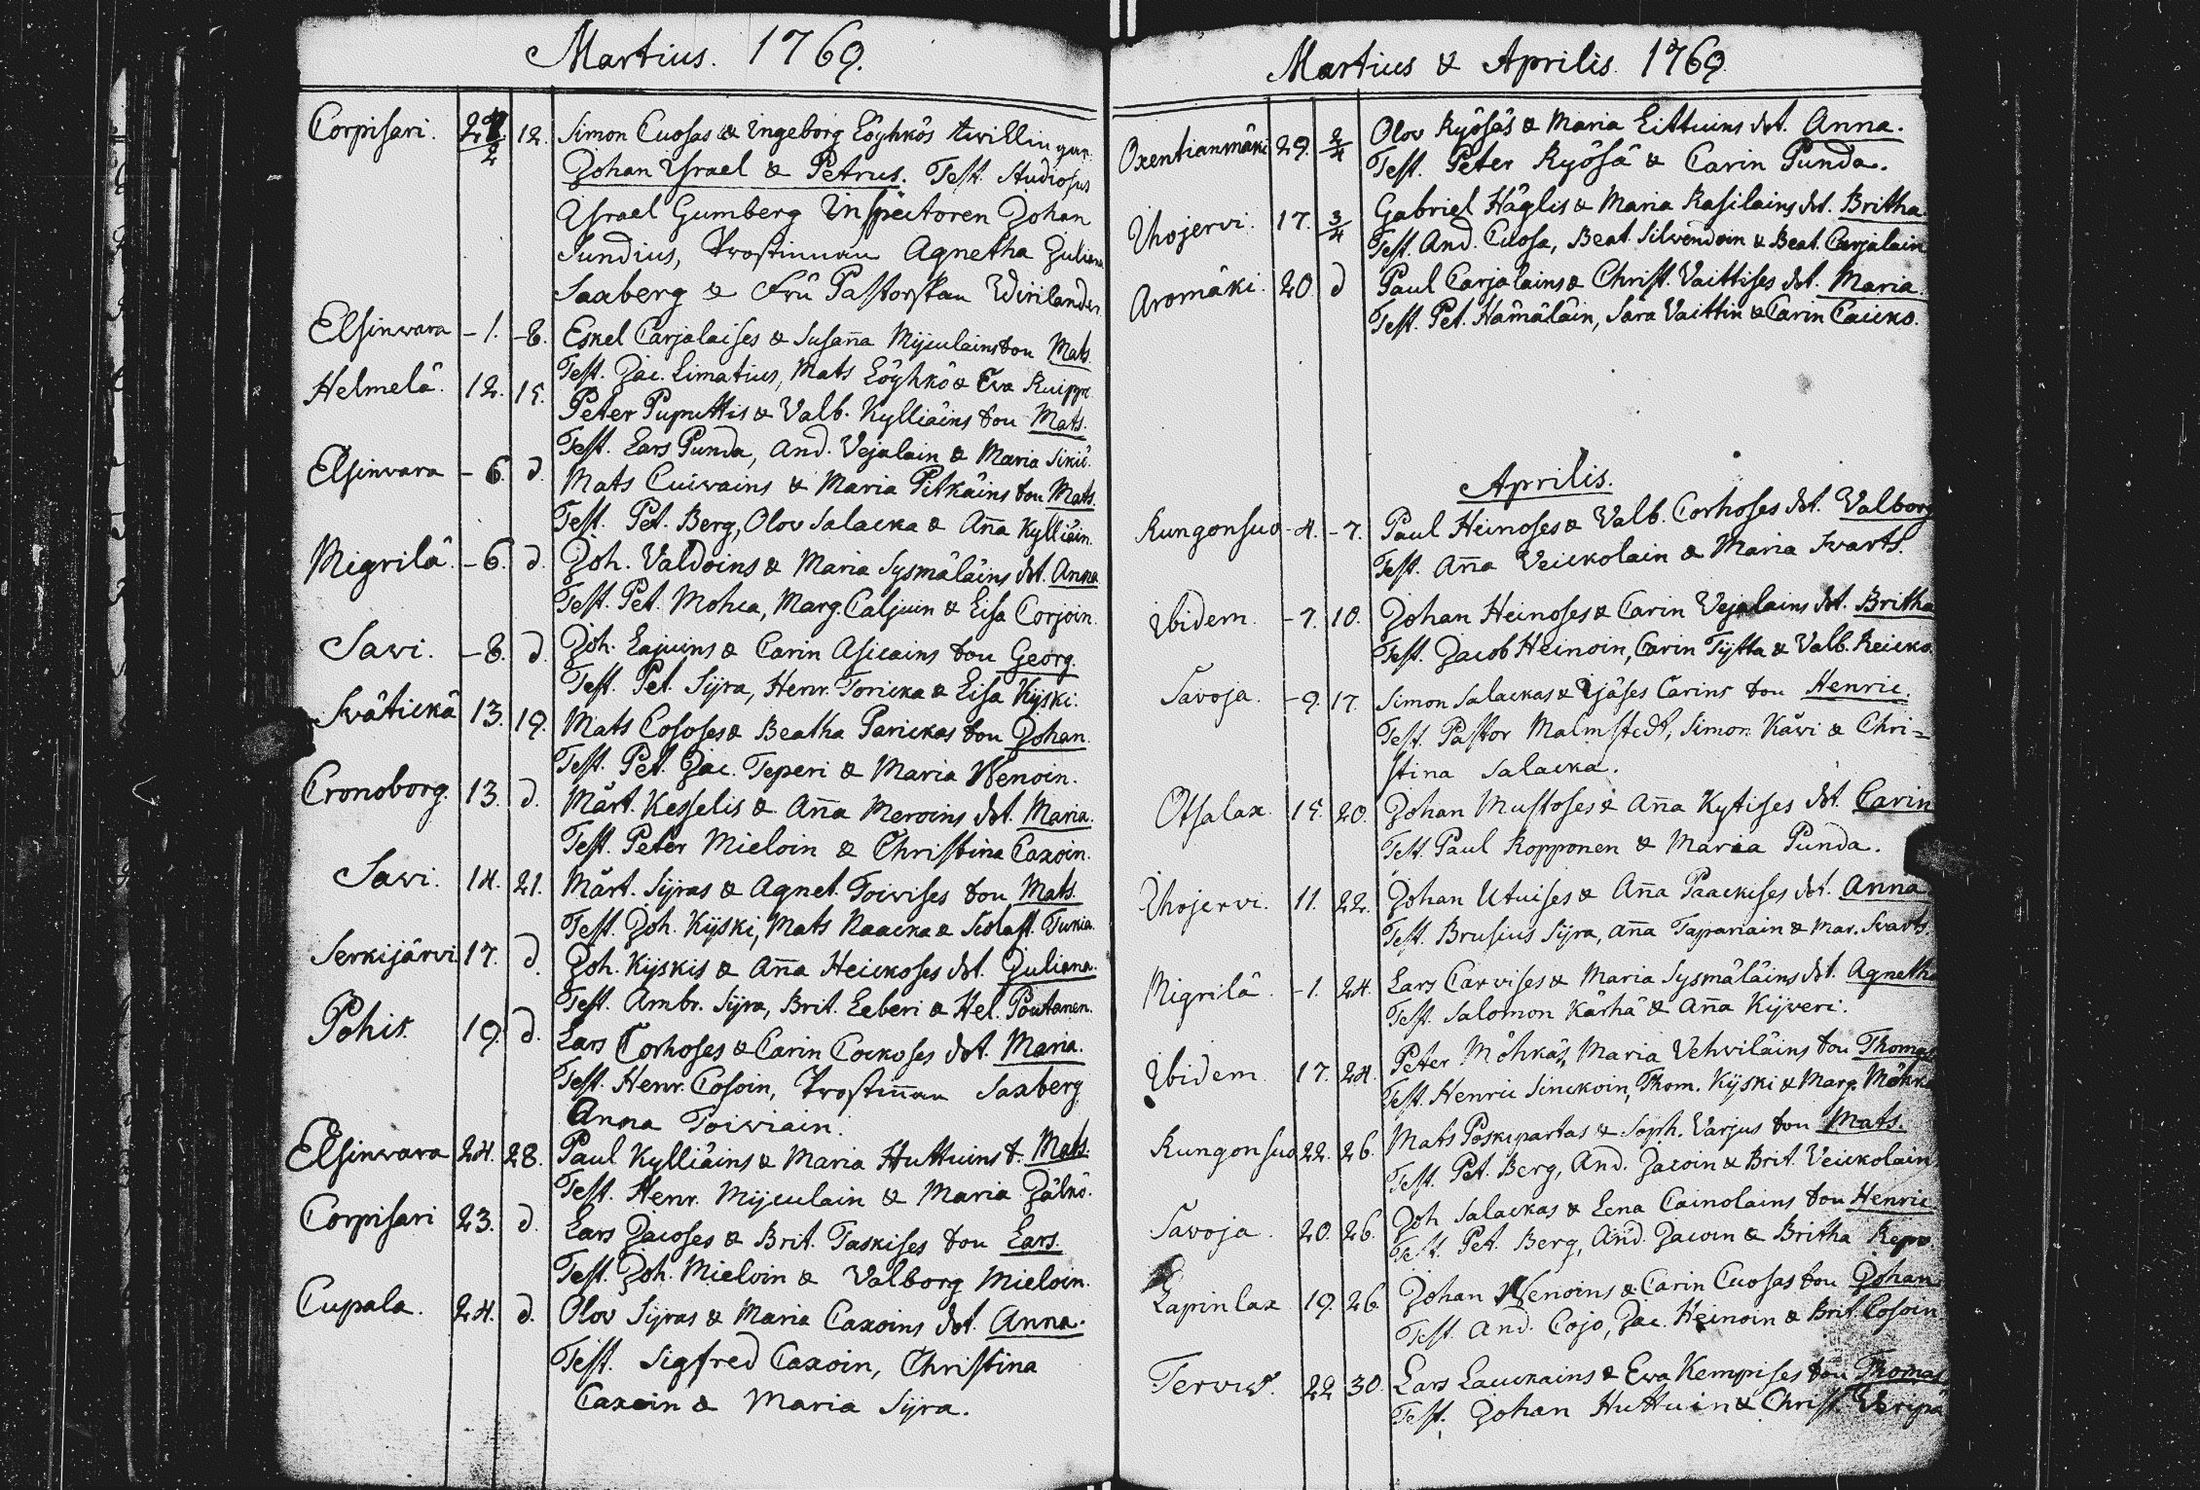 Martius. 1769.
Corpisari. 27/2 12. Simon Cuosas & Ingeborg Löyhkös twillingar.
Johan Israel & Petrus. Test. Studiosus
Israel Gumberg Inspectoren Johan
Sundius, Prostinnan Agnetha Juliana
Saxberg & Fru Pastorskan Wirilander.
Elsinwara - 1. - 8. Eskel Carjalaises & Susan̄a Mijculains son Mats.
Test. Jac. Limatius, Mats Löyhkö & Eva Kuippe
Helmelä. 12. 15. Peter Puputtis & Valb. Kylliäins son Mats.
Test. Lars Punda, And. Vejalain & Maria Sikiö.
Elsinwara - 6. d. Mats Cuiwains & Maria Pitkäins son Mats.
Test. Pet. Berg, Olov Salacka & An̄a Kylliäin.
Migrilä. - 6. d. Joh. Valdoins & Maria Sysmäläins dot. Anna
Test. Pet. Mohca, Marg. Caljuin & Lisa Corjoin.
Savi. - 8. d. Joh. Lajuins & Carin Asicains son Georg.
Test. Pet. Sijra, Henr. Toricka & Lisa Kijski.
Svätickä 13. 19. Mats Cososes & Beatha Parickas son Johan.
Test. Pet. Jac. Teperi & Maria Wenoin.
Cronoborg. 13. d. Mårt. Kesselis & An̄a Meroins dot. Maria.
Test. Peter Mieloin & Christina Caxoin.
Savi. 14. 21. Mårt. Sijras & Agnet. Toivises son Mats.
Test. Joh. Kijski, Mats Raacka & Scolast. Turkia.
Serkijärvi 17. d. Joh. Kijskis & An̄a Heickoses dot. Juliana.
Test. Ambr. Sijra, Brit. Leberi & Hel. Poutanen.
Pohis 19. d. Lars Corhoses & Carin Cockoses dot. Maria.
Test. Henr. Cosoin, Prostin̄an Saxberg
Anna Toiviain.
Elsinwara 24. 28. Paul Kylliäins & Maria Huttuins s. Mats.
Test. Henr. Mijculain & Maria Jälkö.
Corpisari 23. d. Lars Jacoses & Brit. Taskises son Lars.
Test. Joh. Mieloin & Valborg Mieloin.
Cupala. 24. d. Olov Sijras & Maria Caxoins dot. Anna.
Test. Sigfred Caxoin, Christina
Caxoin & Maria Sijra.
Martius & Aprilis. 1769.
Oxentianmäki 29. 2/4 Olov Ryösäs & Maria Littuins dot. Anna.
Test. Peter Ryösä & Carin Punda.
Ihojervi. 17. 3/4 Gabriel Häglis & Maria Rasilains dot. Britha
Test. And. Cuosa, Beat. Silvendoin & Beat. Carjalain
Aromäki. 20 d Paul Carjalains & Christ. Vaittises dot. Maria.
Test. Pet. Hämäläin, Sara Vaittin & Carin Caicko.
Aprilis.
Kungonsuo - 4. - 7. Paul Heinoses & Valb. Corhoses dot. Valborg
Test. An̄a Veickolain & Maria Svarts.
Ibidem. - 7. 10. Johan Heinoses & Carin Vejalains dot. Britha
Test. Jacob Heinoin, Carin Tijtta & Valb. Reicko.
Savoja. - 9. 17. Simon Salackas & Ijäses Carins son Henric.
Test. Pastor Malmstedt, Simon Kävi & Chri=
stina Salacka.
Otsalax. 15. 20. Johan Mustoses & An̄a Kytises dot. Carin
Test. Paul Ropponen & Maria Punda.
Ihojervi. 11. 22. Johan Utuises & An̄a Paackises dot. Anna
Test. Brusius Sijra, An̄a Tapariain & Mar. Svarts.
Migrilä. - 1. 24. Lars Carvises & Maria Sysmäläins dot. Agnetha
Test. Salomon Kärhä & An̄a Kijveri.
Ibidem 17. 24. Peter Möhkäs, Maria Vehviläins son Thomas
Test. Henric Sinckoin, Thom. Kijski & Marg. Möhkö
Kungonsuo 22. 26. Mats Poskipartas & Soph. Varjus son Mats.
Test. Pet. Berg, And. Jacoin & Brit. Veickolain
Savoja. 20. 26. Joh Salackas & Lena Cainolains son Henric
Test. Pet. Berg, And. Jacoin & Britha Repo.
Lapinlax 19. 26. Johan Wenoins & Carin Cuosas son Johan
Test. And. Cojo, Jac. Heinoin & Brit. Cosoin
Tervus. 22 30. Lars Lauckains & Eva Kempises son Thomas
Test. Johan Huttuin & Christ.